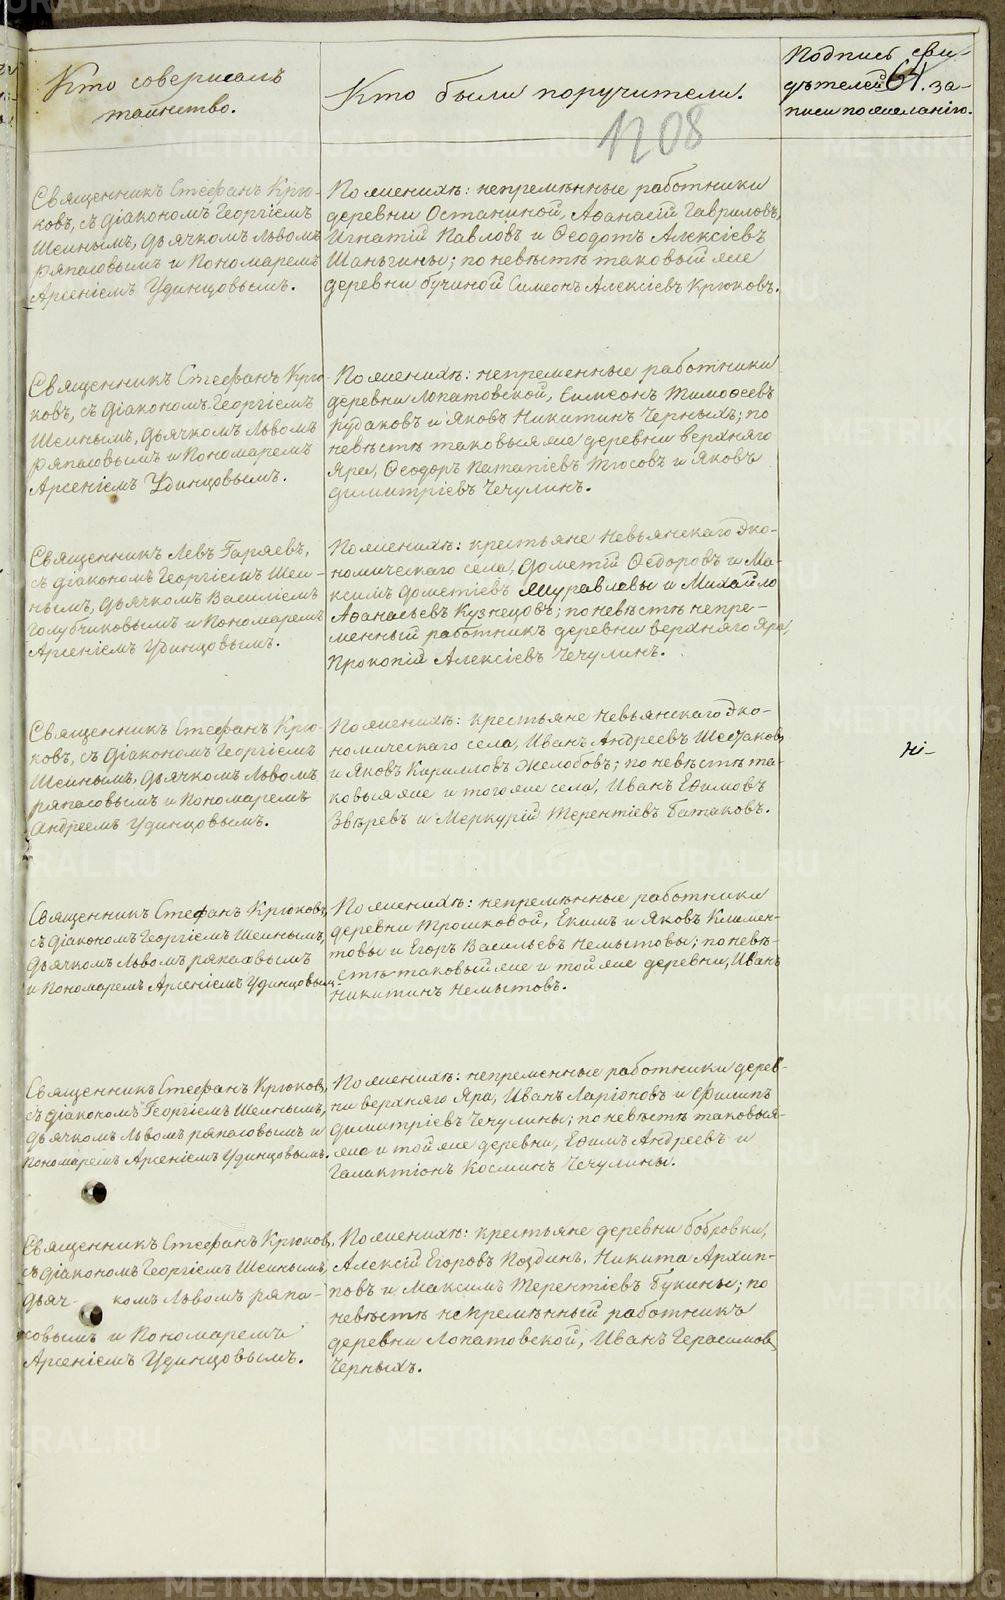 Кто совершалъ
таинство.
Кто были поручители.
Подпись сви-
дѣтелей за-
писи по желанію.
64.
1208
Священникъ Стефанъ Крю-
ковъ, съ діакономъ Георгіемъ
Шеинымъ, дьячкомъ Львомъ
Ряпасовымъ и Пономаремъ
Арсеніемъ Удинцовымъ.
По женихѣ: непремѣнные работники
деревни Останиной, Аѳанасій Гавриловъ,
Игнатій Павловъ и Ѳеодотъ Алексіевъ
Шаньгины; по невѣстѣ таковый же
деревни бучиной Симеонъ Алексіевъ Крюковъ.
Священникъ Стефанъ Крю-
ковъ, съ діакономъ Георгіемъ
Шеинымъ, дьячкомъ Львомъ
Ряпасовымъ и Пономаремъ
Арсеніемъ Удинцовымъ.
По женихѣ: непременные работники
деревни Лопатовской, Симеонъ Тимоѳеевъ
Кудаковъ и Яковъ Никитинъ Черныхъ; по
невѣстѣ таковыя же деревни верхняго
Яра, Ѳеодоръ Патапіевъ Тюсовъ и Яковъ
Димитріевъ Чечулинъ.
Священникъ Левъ Гаряевъ,
съ діакономъ Георгіемъ Шеи-
нымъ, дьячкомъ Василіемъ
Голубчиковымъ и Пономаремъ
Арсеніемъ Удинцовымъ.
По женихѣ: крестьяне Невьянскаго Эко-
номическаго села, Дометій Ѳедоровъ и Ма-
ксимъ Дометіевъ Журавлевы и Михайло
Аѳанасьевъ Кузнецовъ; по невѣстѣ непре-
менный работникъ деревни верхняго Яра,
Прокопій Алексіевъ Чечулинъ.
Священникъ Стефанъ Крю-
ковъ, съ діакономъ Георгіемъ
Шеинымъ, дьячкомъ Львомъ
Ряпасовымъ и Пономаремъ
Андреемъ Удинцовымъ.
По женихѣ: крестьяне Невьянскаго Эко-
номическаго села, Иванъ Андреевъ Шестаковъ
и Яковъ Кирилловъ Желобовъ; по невѣстѣ та-
ковыя же и того же села, Иванъ Еѳимовъ
Звѣревъ и Меркурій Терентіевъ Батаковъ.
Ні-
Священникъ Стефанъ Крюковъ,
съ діакономъ Георгіемъ Шеинымъ,
дьячкомъ Львомъ ряпасовымъ
и Пономаремъ Арсеніемъ Удинцовымъ.
По женихѣ: непремѣнные работники
деревни Трошковой, Екимъ и Яковъ Климен-
товы и Егоръ Васильевъ Немытовы; по невѣ-
стѣ таковый же и той же деревни, Иванъ
Никитинъ Немытовъ.
Священникъ Стефанъ Крюковъ,
съ діакономъ Георгіемъ Шеинымъ,
дьячкомъ Львомъ ряпасовымъ и
Пономаремъ Арсеніемъ Удинцовымъ.
По женихѣ: непременные работники дерев-
ни верхняго Яра, Иванъ Ларіоновъ и Филипъ
Димитріевъ Чечулины; по невѣстѣ таковыя-
же и той же деревни, Еѳимъ Андреевъ и
Галактіонъ Косминъ Чечулины.
Священникъ Стефанъ Крюковъ,
съ діакономъ Георгіемъ Шеинымъ,
дьяч- комъ Львомъ ряпа-
совымъ и Пономаремъ
Арсеніемъ Удинцовымъ.
По женихѣ: крестьяне деревни бобровки,
Алексій Егоровъ Поздинъ, Никита Архип-
повъ и Максимъ Терентіевъ Букины; по
невѣстѣ непремѣнный работникъ
деревни Лопатовской, Иванъ Герасимовъ
Черныхъ.